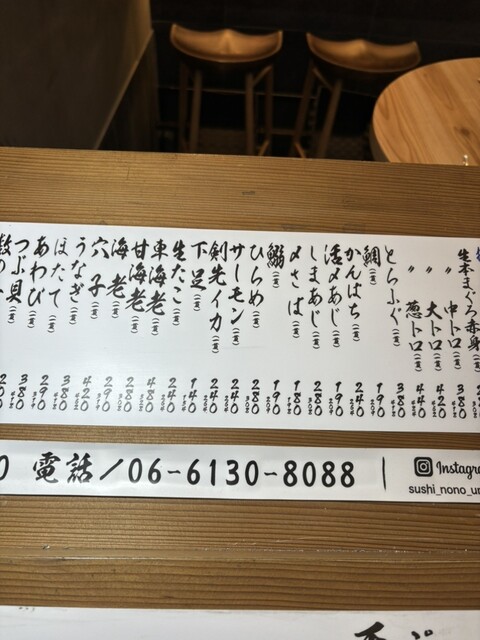 生本まぐろ赤身(一貫)
〃 中トロ(一貫) 380
〃 大トロ(一貫) 420
〃 葱トロ(一貫)
とらふぐ(一貫) 380
鯛(一貫) 190
かんぱち(一貫) 240
活〆あじ(一貫) 190
しまあじ(一貫) 280
〆さば(一貫) 180
鰯(一貫) 190
ひらめ(一貫) 280
サーモン(一貫) 240
剣先イカ(一貫) 240
下足(一貫) 140
生たこ(一貫) 240
車海老(一貫) 480
甘海老(一貫) 280
海老(一貫) 290
穴子(一貫) 420
うなぎ(一貫) 380
ほたて(一貫) 290
あわび(一貫) 380
つぶ貝(一貫)
0 電話/06-6130-8088
Instagra
sushi_nono_u